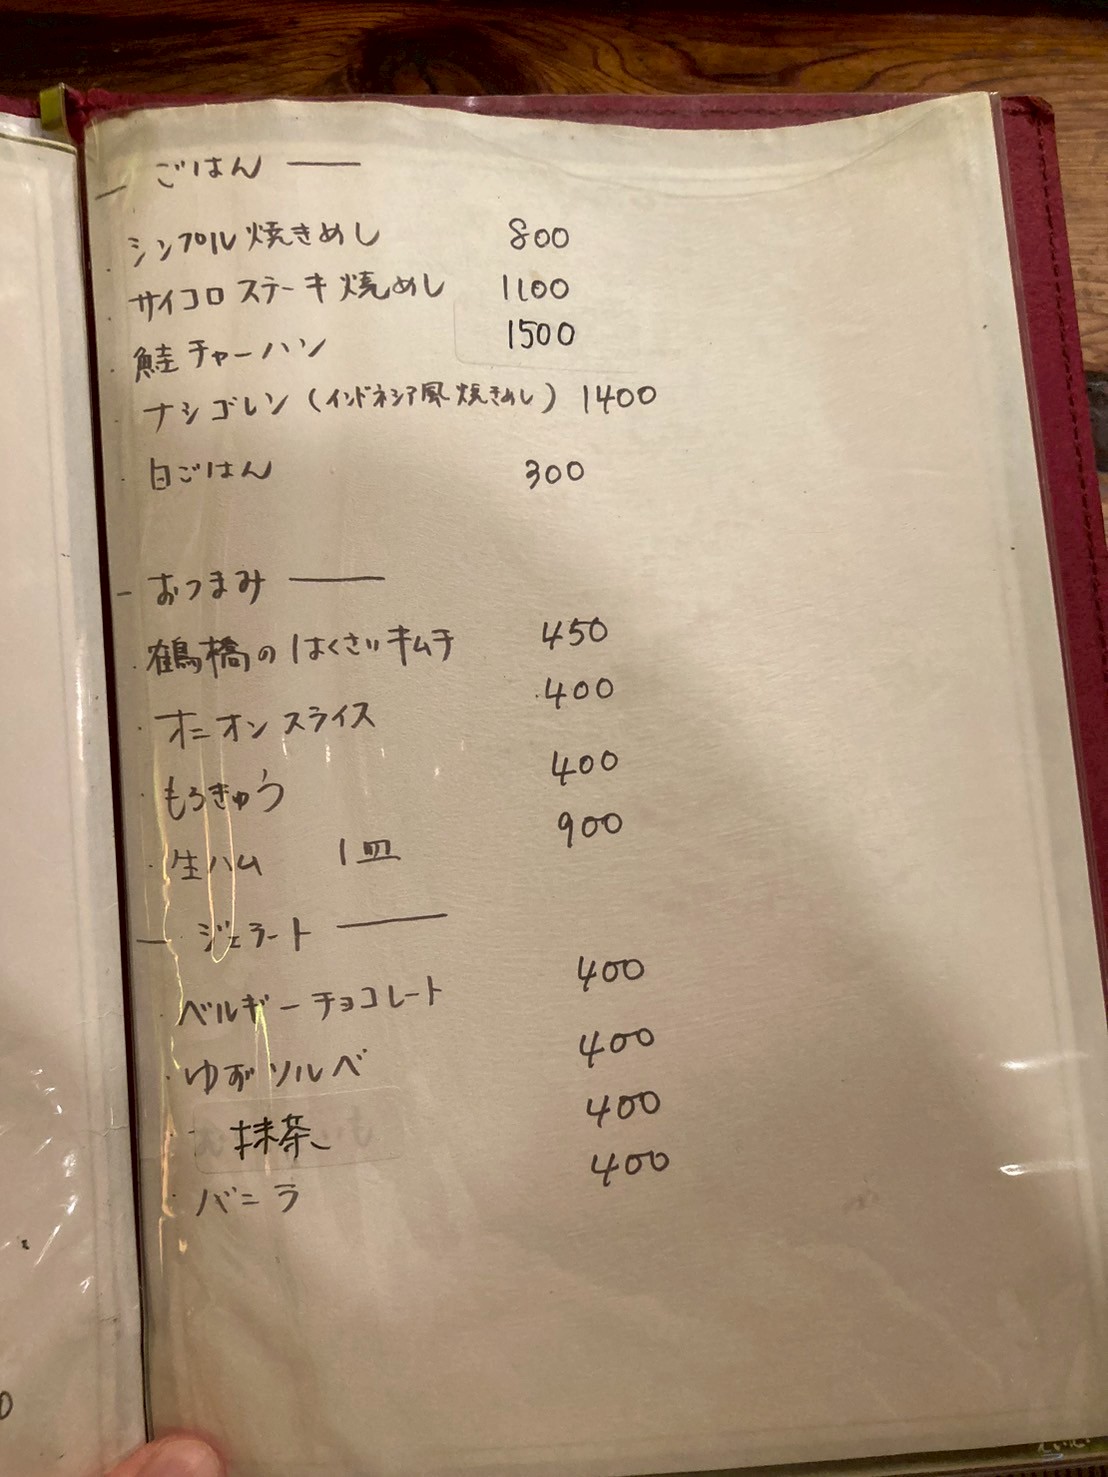 ごはん
シンプル焼きめし 800
サイコロステーキ焼めし 1100
鮭チャーハン 1500
ナシゴレン(インドネシア風焼きめし) 1400
白ごはん 300
おつまみ
鶴橋のはくさいキムチ 450
オニオンスライス 400
もろきゅう 400
生ハム 1皿 900
ジェラート
ベルギーチョコレート 400
ゆずソルベ 400
抹茶 400
バニラ 400